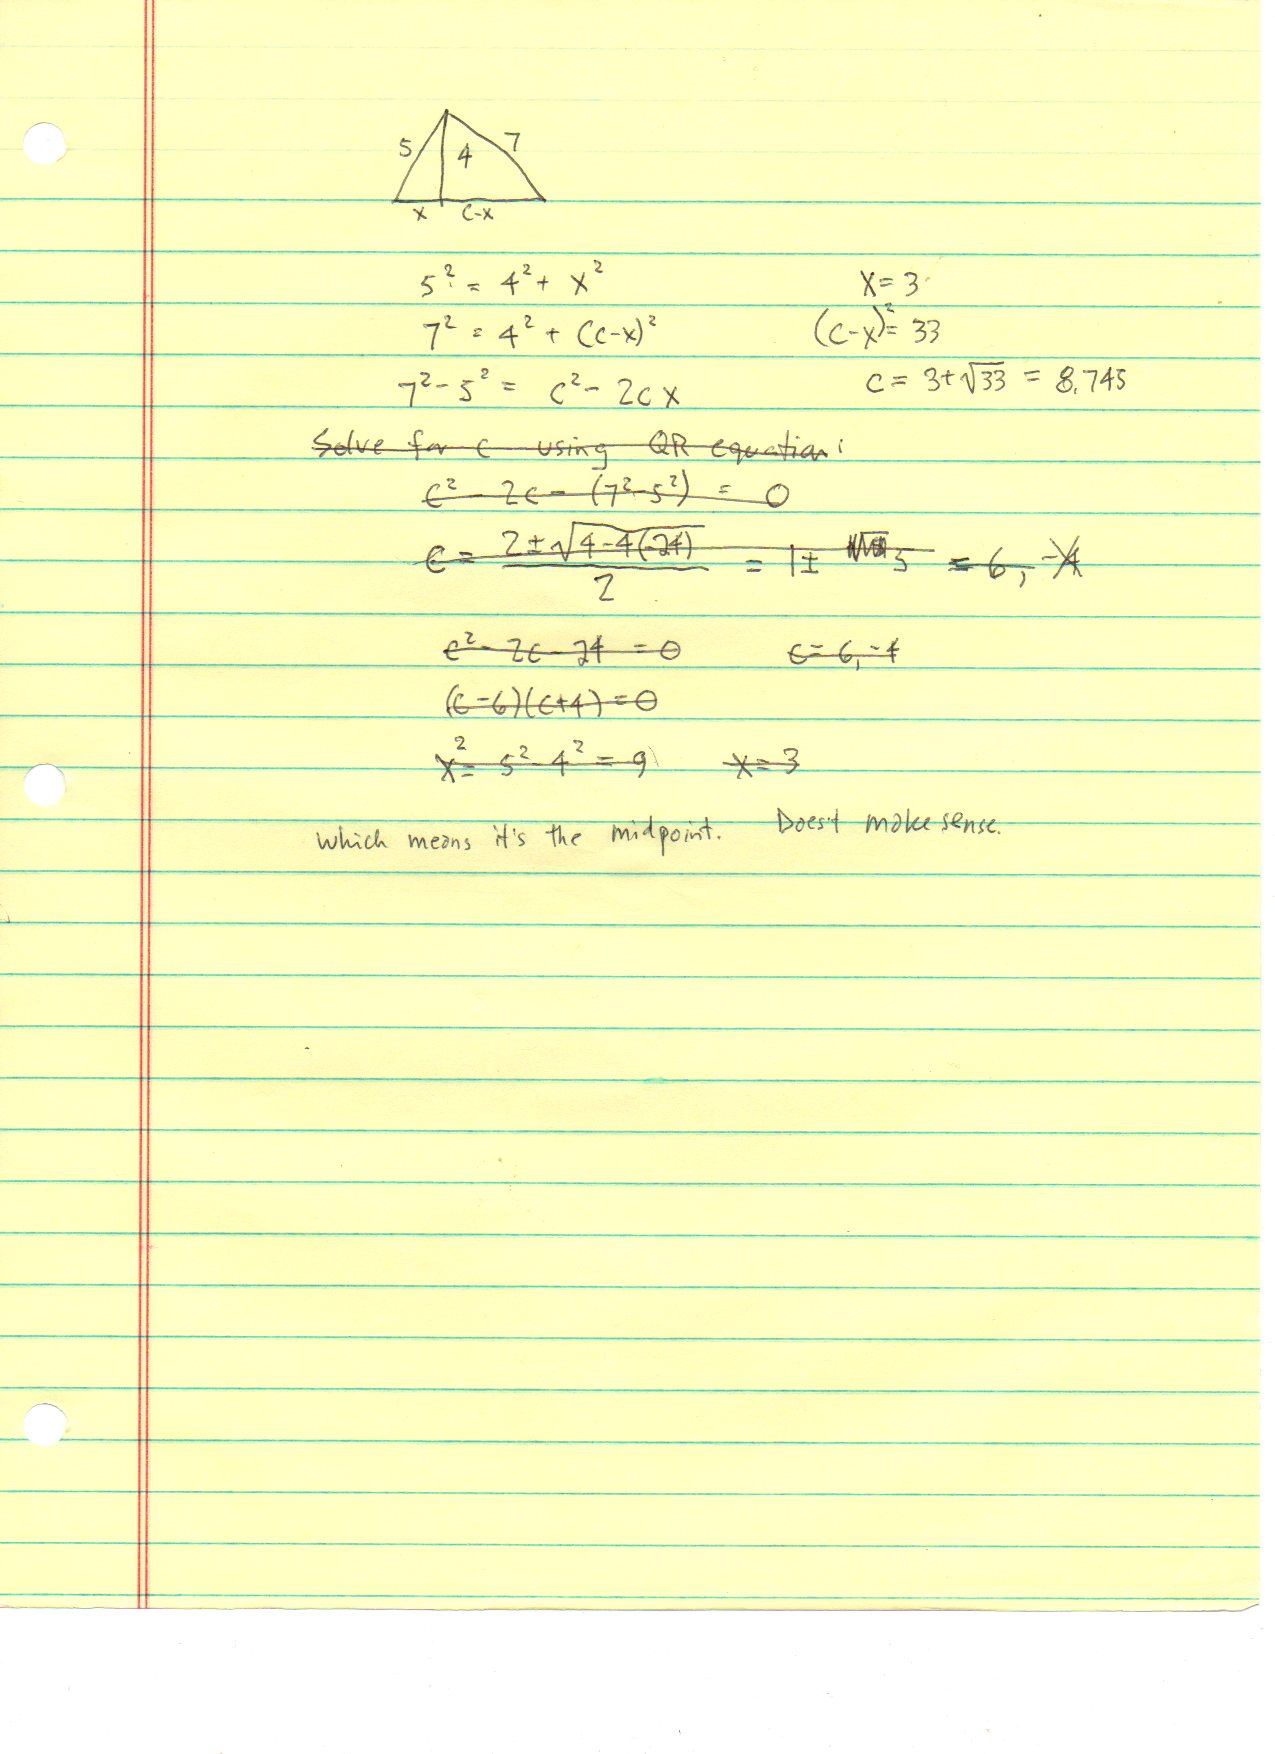 5 4 7
x c-x
5² = 4² + x² x = 3
7² = 4² + (c-x)² (c-x)² = 33
7² - 5² = c² - 2cx c = 3+√33 = 8.745
Solve for c using QR equation:
c² - 2c - (7²-5²) = 0
c = (2 ± √(4-4(-24)))/2 = 1 ± 5 = 6, -4
c² - 2c - 24 = 0 c = 6, -4
(c-6)(c+4) = 0
x² = 5² - 4² = 9 x = 3
Which means it's the midpoint. Does't make sense.